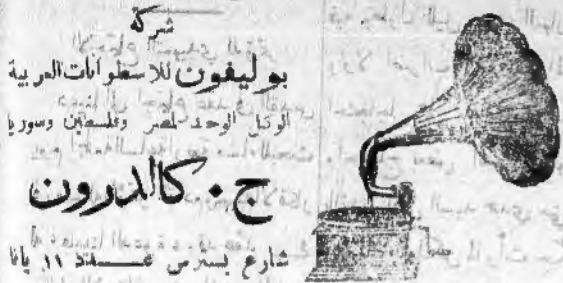 شركة
بوليفون للاسطوانات العربية
الوكيل الوحيد لمصر وفلسطين وسوريا
ج. كالدرون
شارع بسترس ١١ يافا